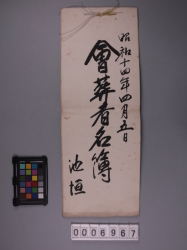 昭和十四年四月五日
會葬者名簿
池垣
0006967